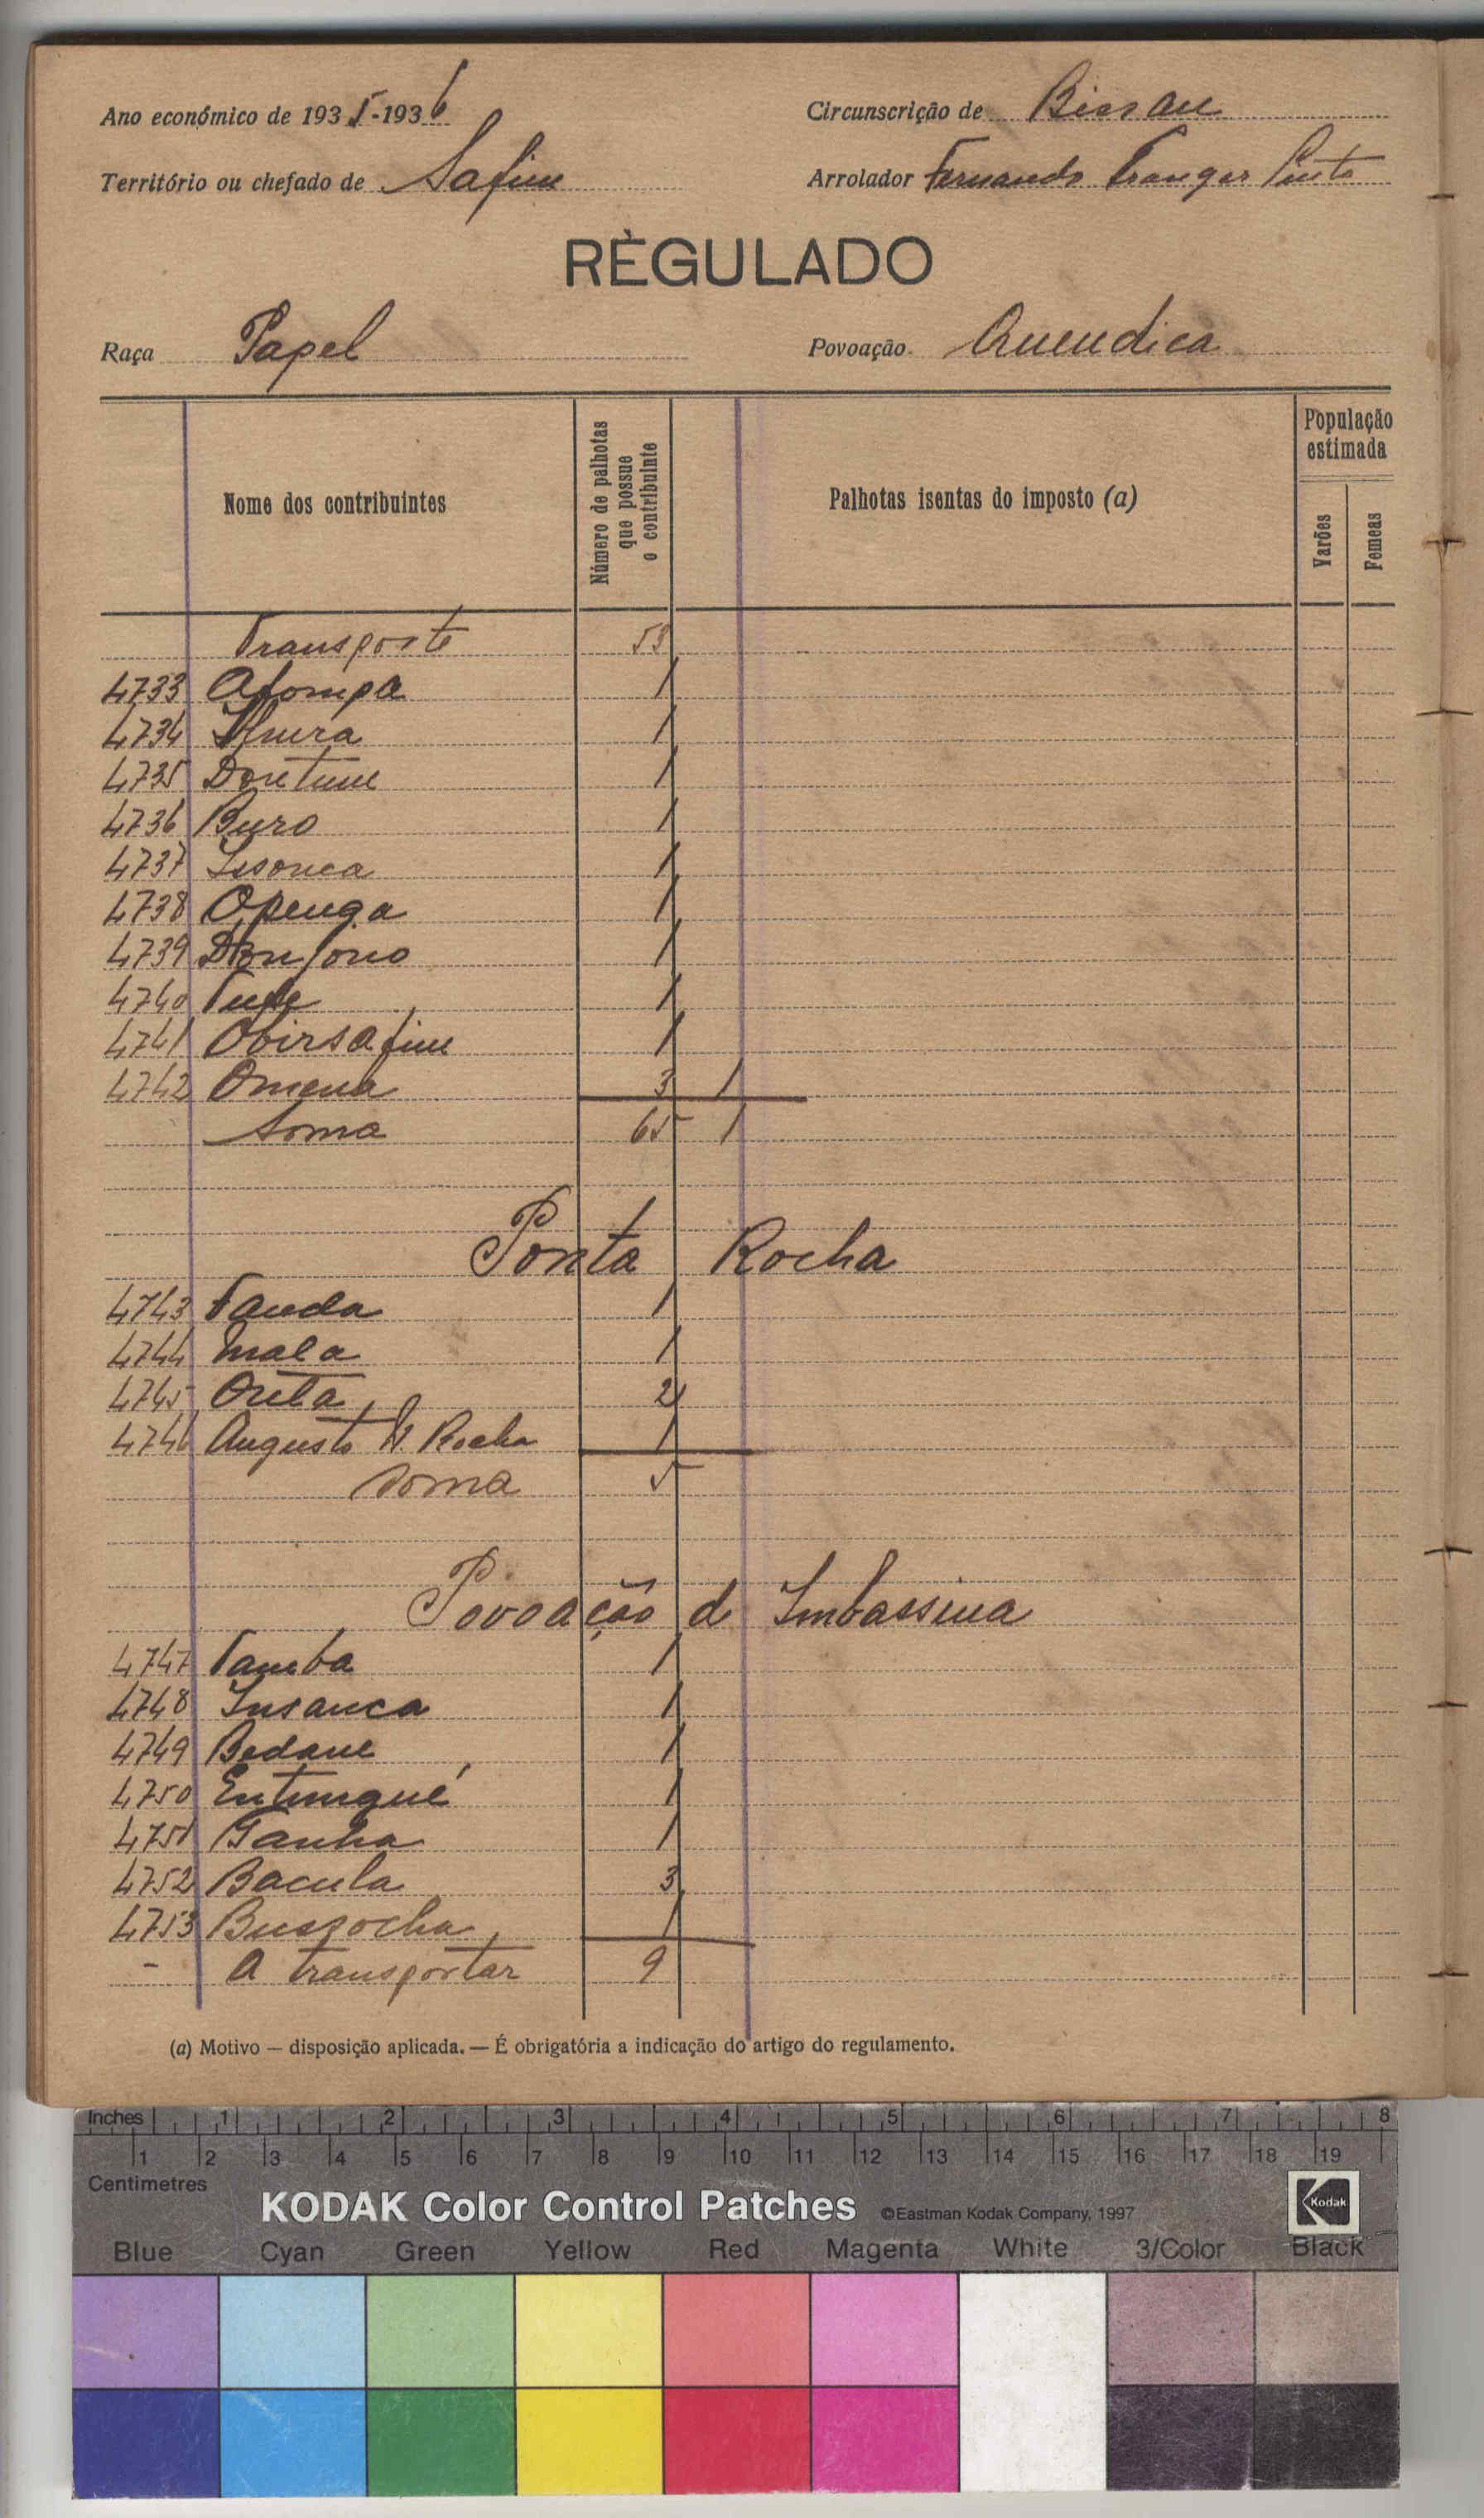 Ano económico de 1935-1936
Circunscrição de Bissau
Território ou chefado de Safim
Arrolador Fernando Pinto
RÈGULADO
Raça Papel
Povoação Quendica
Nome dos contribuintes
Número de palhotas que possue o contribuinte
Palhotas isentas do imposto (a)
População estimada
Varões
Femeas
Transporte 53
4733 Afompa 1
4734 1
4735 Donetume 1
4736 Buro 1
4737 Issonca 1
4738 Openga 1
4739 1
4740 Tupe 1
4741 Obirsafim 1
4742 Omena 3 1
Soma 65 1
Ponta Rocha
4743 Tanda 1
4744 Mala 1
4745 Onta 2
4746 Augusto Rocha 1
Soma 5
Povoação d Imbassina
4747 Tamba 1
4748 Insanca 1
4749 Bedane 1
4750 Entungué 1
4751 Ganha 1
4752 Bacula 3
4753 Bussocha 1
- A transportar 9
(a) Motivo — disposição aplicada. — É obrigatória a indicação do artigo do regulamento.
Inches 1 2 3 4 5 6 7 8
1 2 3 4 5 6 7 8 9 10 11 12 13 14 15 16 17 18 19
Centimetres
KODAK Color Control Patches ©Eastman Kodak Company, 1997 Kodak
Blue Cyan Green Yellow Red Magenta White 3/Color Black